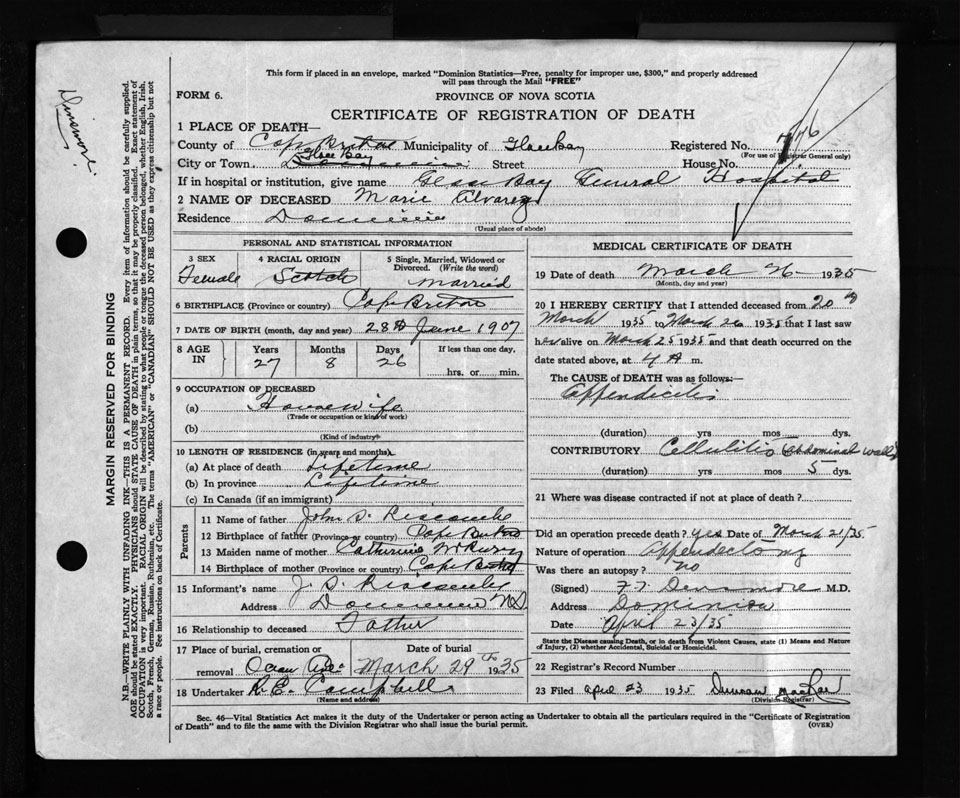 This form if placed in an envelope, marked "Dominion Statistics—Free, penalty for improper use, $300," and properly addressed
will pass through the Mail "FREE"
FORM 6.
PROVINCE OF NOVA SCOTIA
CERTIFICATE OF REGISTRATION OF DEATH
1 PLACE OF DEATH—
County of Cape Breton Municipality of Glace Bay Registered No.
(For use of Registrar General only)
City or Town Glace Bay Street House No.
If in hospital or institution, give name Glace Bay General Hospital
2 NAME OF DECEASED Marie Alvarez
Residence Dominion
(Usual place of abode)
PERSONAL AND STATISTICAL INFORMATION
3 SEX
Female
4 RACIAL ORIGIN
Scotch
5 Single, Married, Widowed or Divorced. (Write the word)
Married
6 BIRTHPLACE (Province or country) Cape Breton
7 DATE OF BIRTH (month, day and year) 28th June 1907
8 AGE IN
Years Months Days If less than one day,
27 8 26
hrs. or min.
9 OCCUPATION OF DECEASED
(a) Housewife
(Trade or occupation or kind of work)
(b)
(Kind of industry)
10 LENGTH OF RESIDENCE (in years and months)
(a) At place of death Lifetime
(b) In province Lifetime
(c) In Canada (if an immigrant)
Parents
11 Name of father John S.
12 Birthplace of father (Province or country) Cape Breton
13 Maiden name of mother Catherine
14 Birthplace of mother (Province or country) Cape Breton
15 Informant's name J. S.
Address Dominion NS
16 Relationship to deceased Father
17 Place of burial, cremation or Date of burial
removal March 29th 1935
18 Undertaker R.E. Campbell
(Name and address)
MEDICAL CERTIFICATE OF DEATH
19 Date of death March 26 1935
(Month, day and year)
20 I HEREBY CERTIFY that I attended deceased from 20th
March 1935 to March 26 1935 that I last saw
her alive on March 25 1935 and that death occurred on the
date stated above, at 4 A m.
The CAUSE of DEATH was as follows:—
Appendicitis
(duration) yrs mos dys.
CONTRIBUTORY Cellulitis (abdominal wall)
(duration) yrs mos 5 dys.
21 Where was disease contracted if not at place of death?
Did an operation precede death? yes Date of March 21/35
Nature of operation Appendectomy
Was there an autopsy? no
(Signed) F.T. Densmore M.D.
Address Dominion
Date April 23/35
State the Disease causing Death, or in death from Violent Causes, state (1) Means and Nature
of Injury, (2) whether Accidental, Suicidal or Homicidal.
22 Registrar's Record Number
23 Filed April 23 1935 Duncan MacRae
(Division Registrar)
Sec. 46—Vital Statistics Act makes it the duty of the Undertaker or person acting as Undertaker to obtain all the particulars required in the "Certificate of Registration
of Death" and to file the same with the Division Registrar who shall issue the burial permit. (OVER)
MARGIN RESERVED FOR BINDING
N.B.—WRITE PLAINLY WITH UNFADING INK—THIS IS A PERMANENT RECORD. Every item of information should be carefully supplied.
AGE should be stated EXACTLY. PHYSICIANS should STATE CAUSE OF DEATH in plain terms, so that it may be properly classified. Exact statement of
OCCUPATION is very important. RACIAL ORIGIN will be described by stating to what people or tongue the deceased person belonged, whether English, Irish,
Scotch, French, German, Russian, Ruthenian, etc. The terms "AMERICAN" or "CANADIAN" SHOULD NOT BE USED as they express citizenship but not
a race or people. See instructions on back of Certificate.